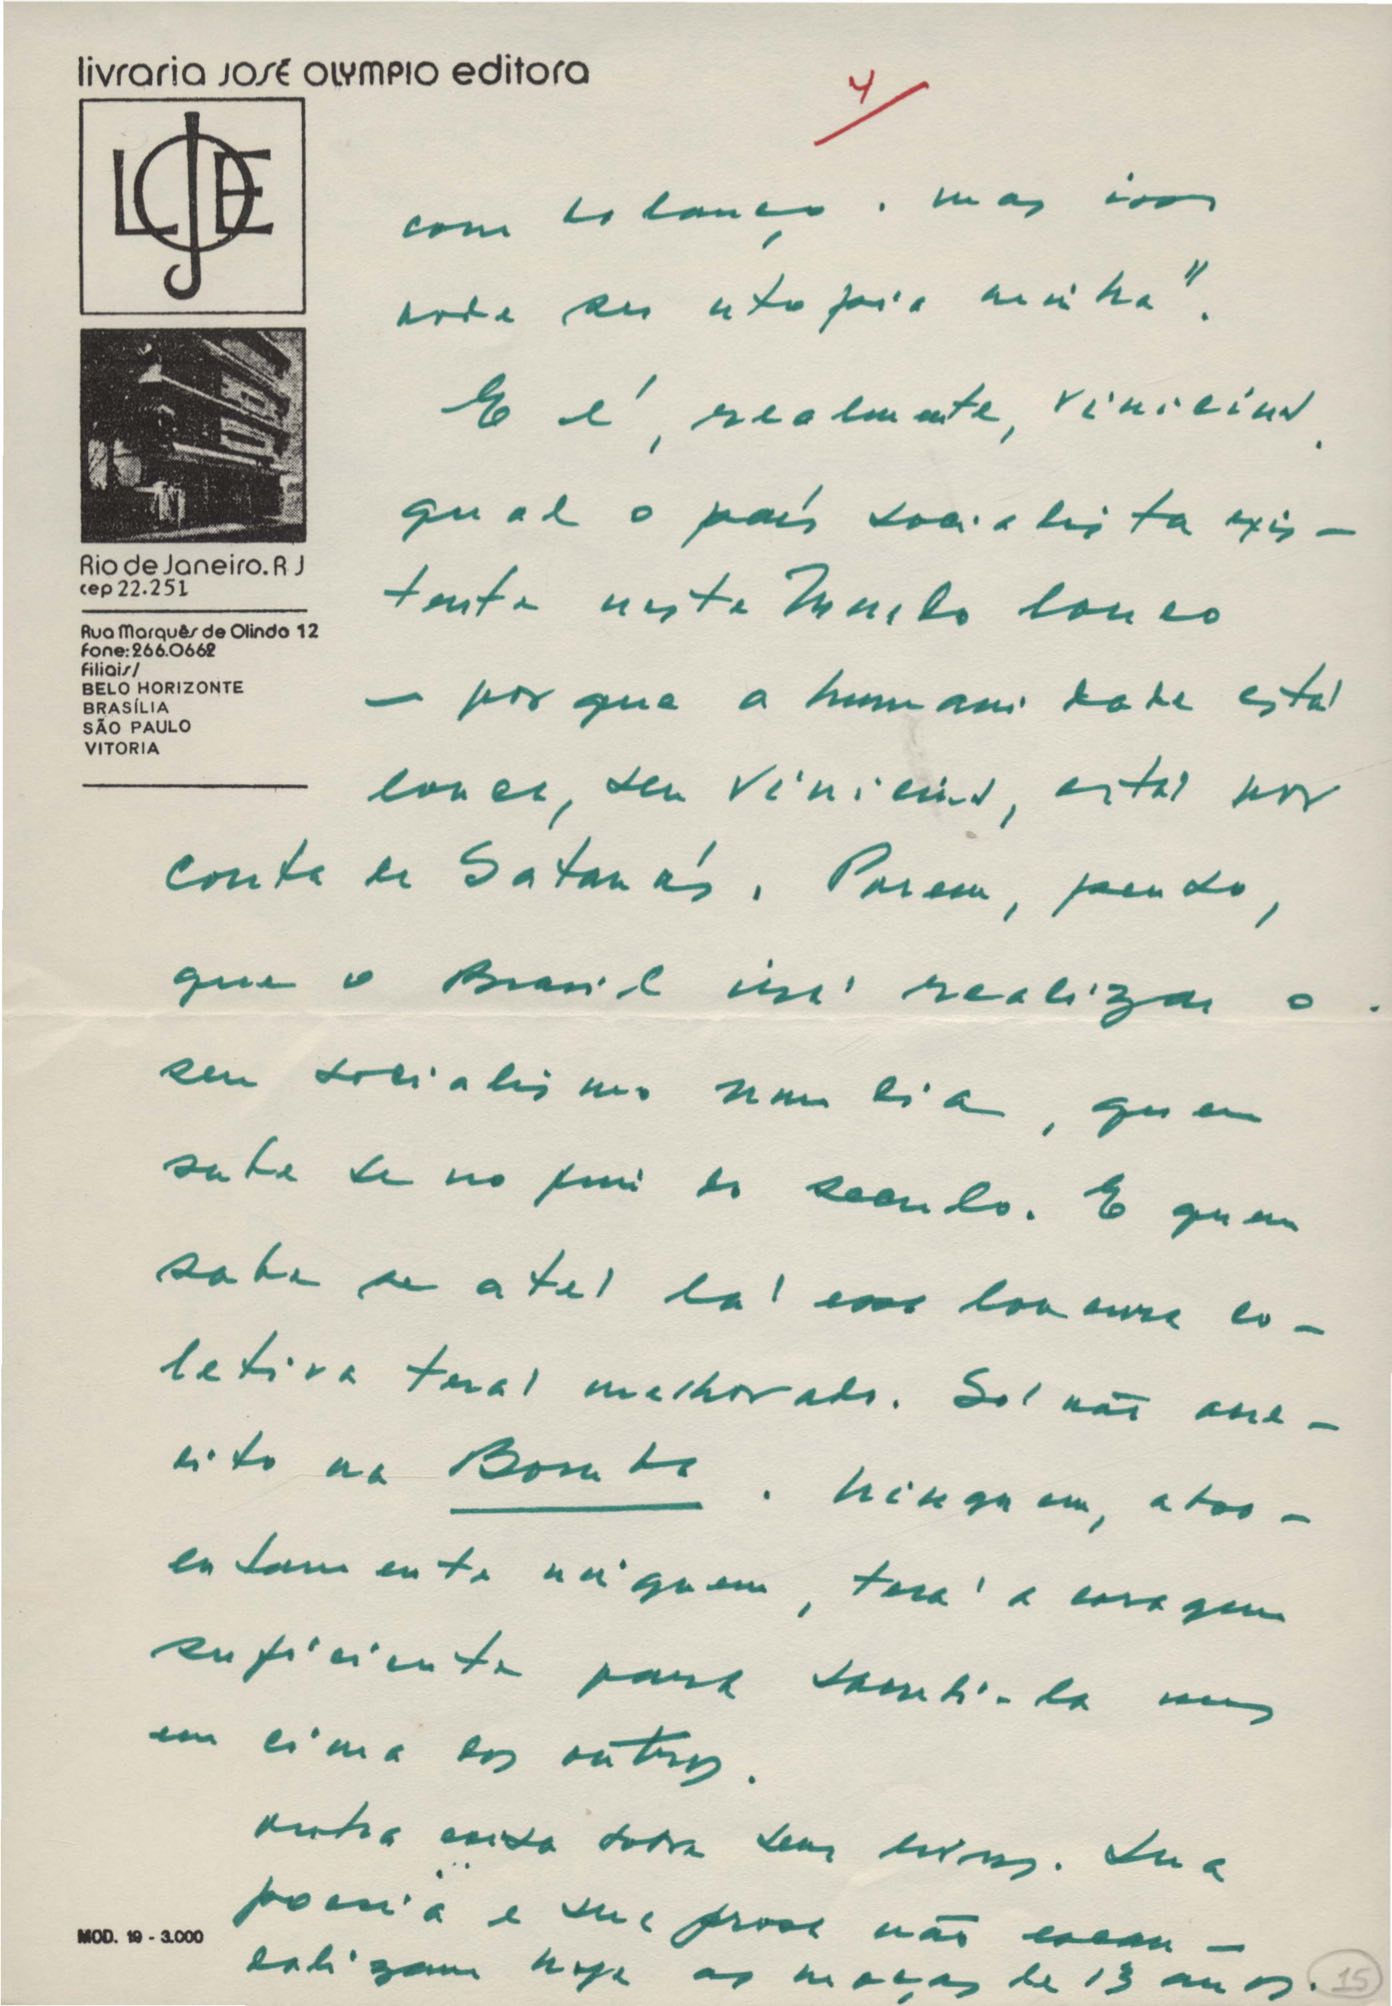 livraria JOSÉ OLYMPIO editora
4
LJOE
Rio de Janeiro. RJ
cep 22.251
Rua Marquês de Olinda 12
Fone: 266.0662
Filiais/
BELO HORIZONTE
BRASÍLIA
SÃO PAULO
VITORIA
com balanço. mas isso
pode ser utopia minha".
E é, realmente, Vinicius.
qual o país socialista exis-
tente neste mundo louco
— porque a humanidade está
louca, seu Vinicius, está por
conta de Satanás. Porem, penso,
que o Brasil irá realizar o
seu socialismo num dia, quem
sabe se no fim do seculo. E quem
sabe se até lá essa loucura co-
letiva terá melhorado. Só não acre-
dito na Bomba. Ninguem, abso-
lutamente ninguem, terá a coragem
suficiente para sacudi-la uns
em cima dos outros.
outra coisa sobre seus livros. Sua
poesia e sua prosa não escan-
dalizam hoje as moças de 13 anos.
MOD. 19 - 3.000
15